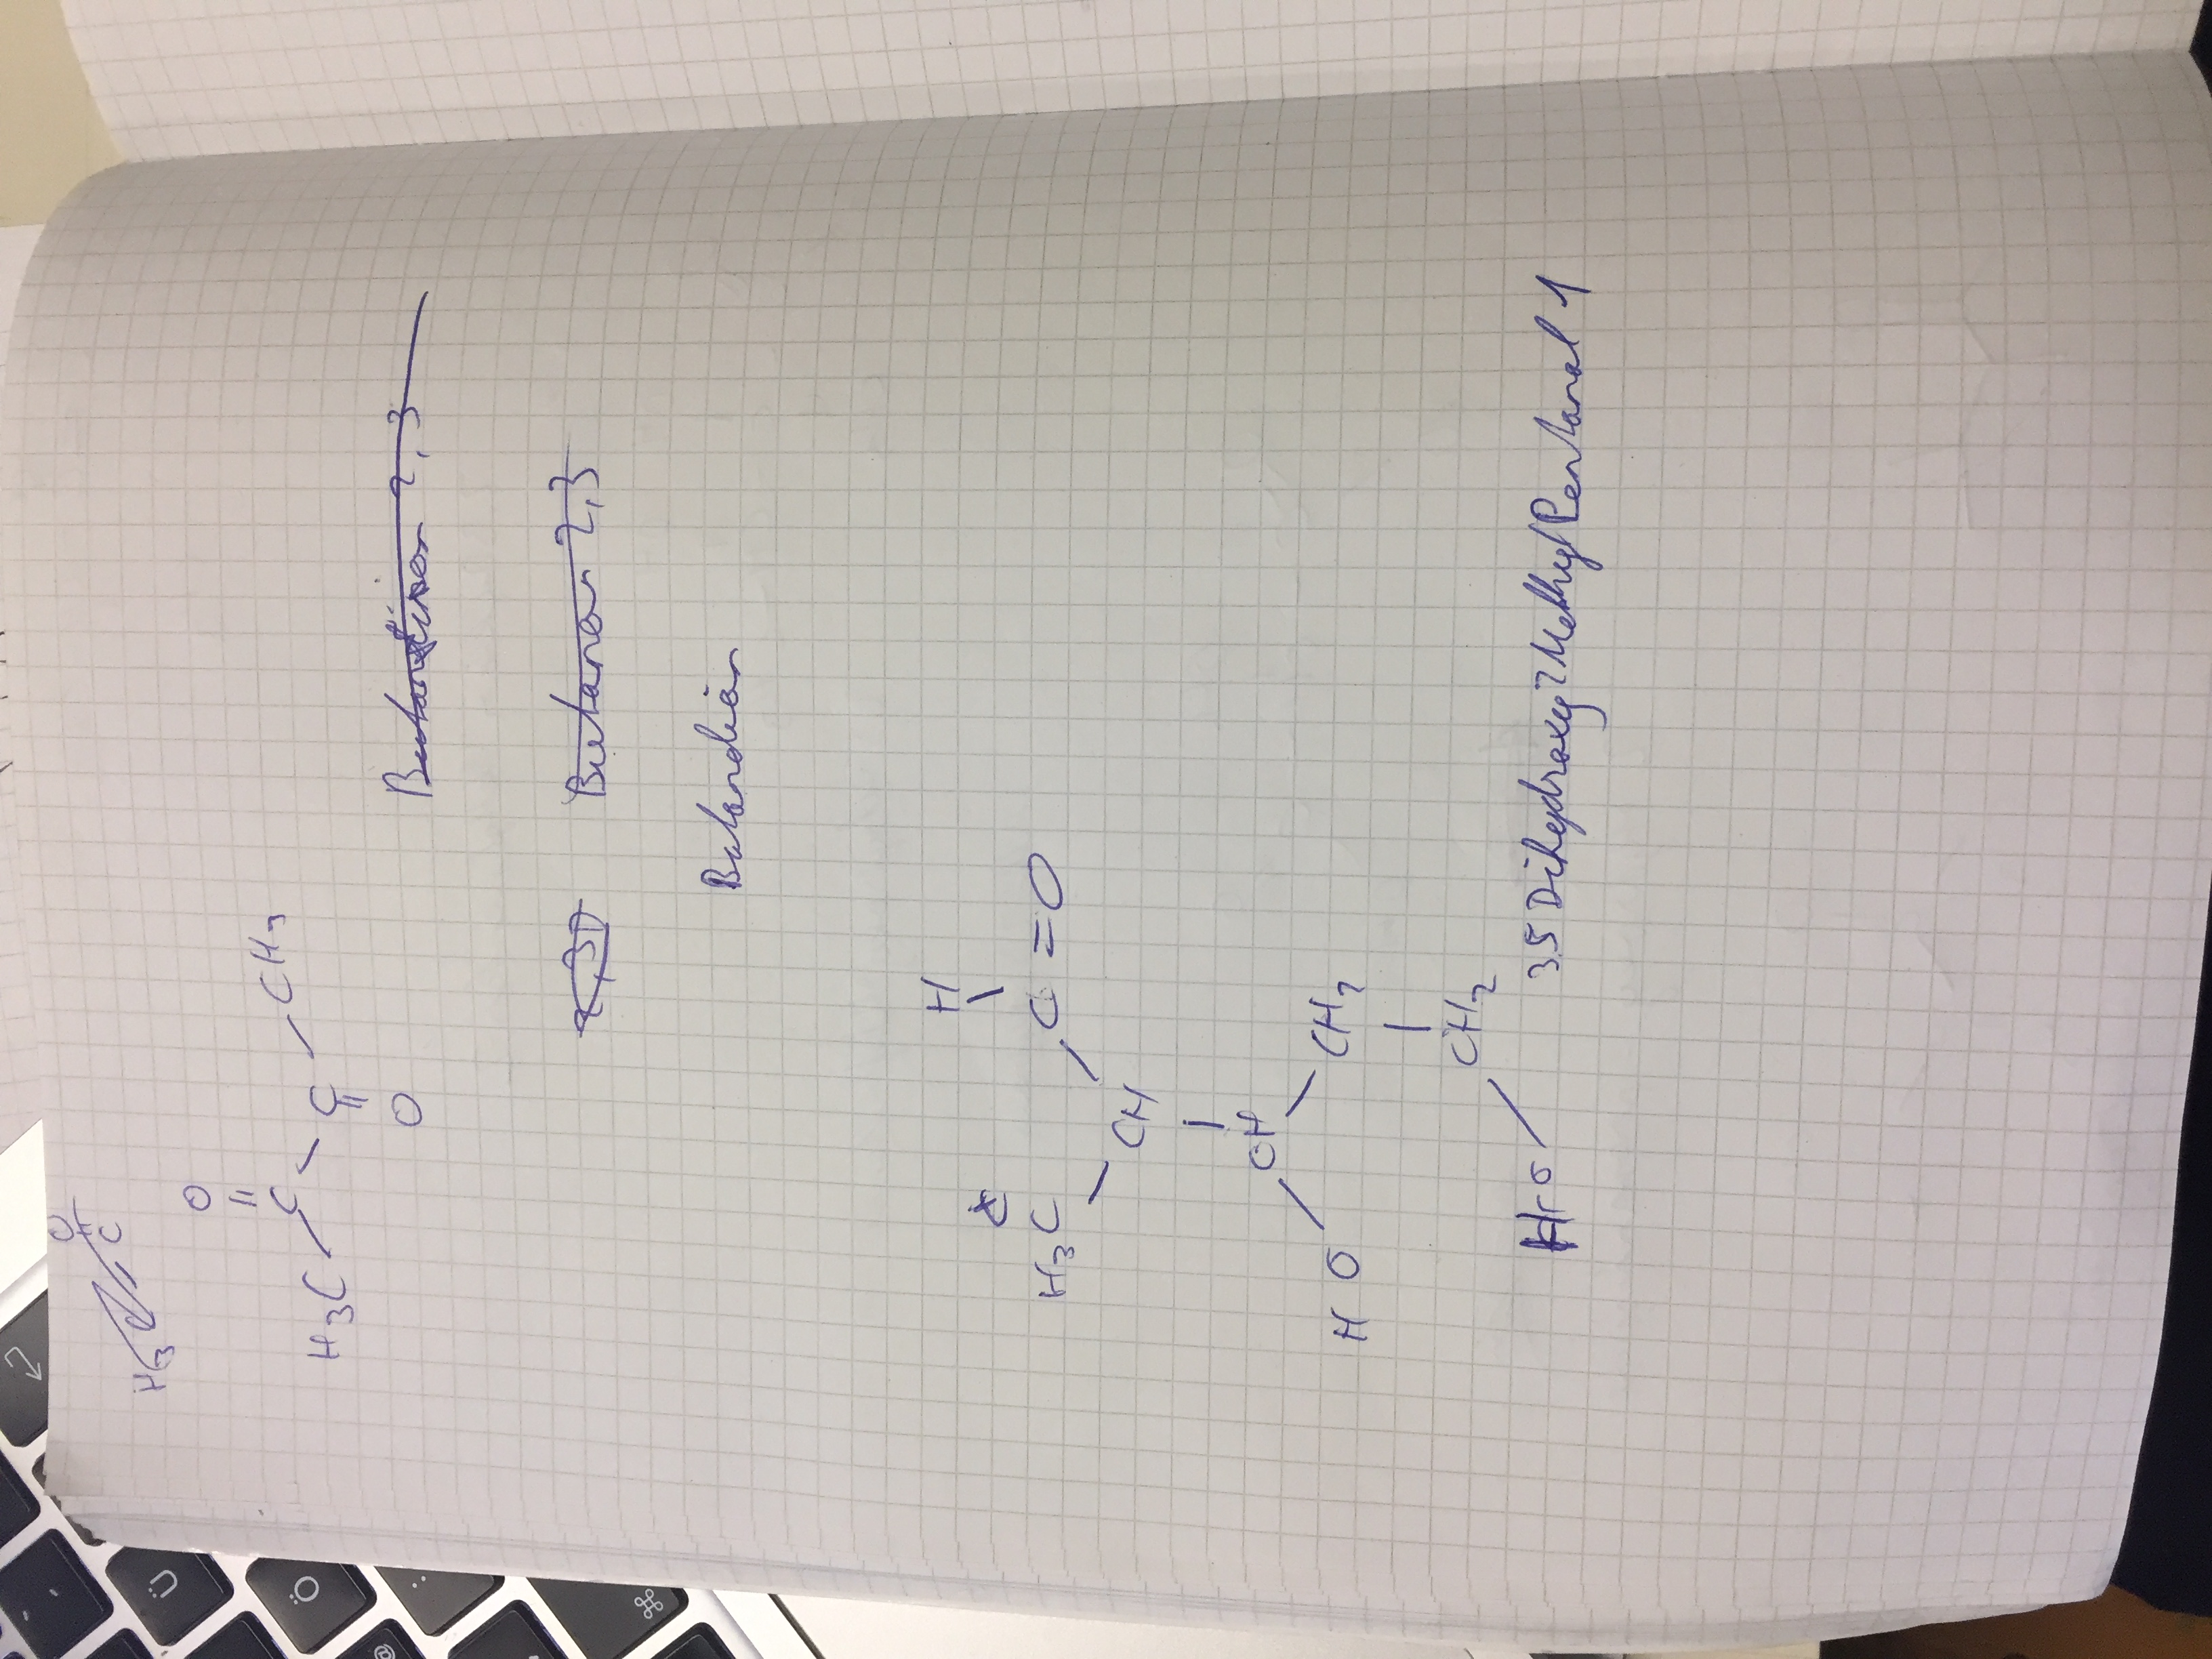 Ü
Ö
@
⌘
O
C
H3
O
=
C
H3C
CH3
C
=
O
2, 3
2,3D
Butanon 2,3
Butandion
H
H3C
C = O
CH
CH
H O
CH2
CH2
H-O
3.5 Dihydroxy 2 Methyl Pentanal 1